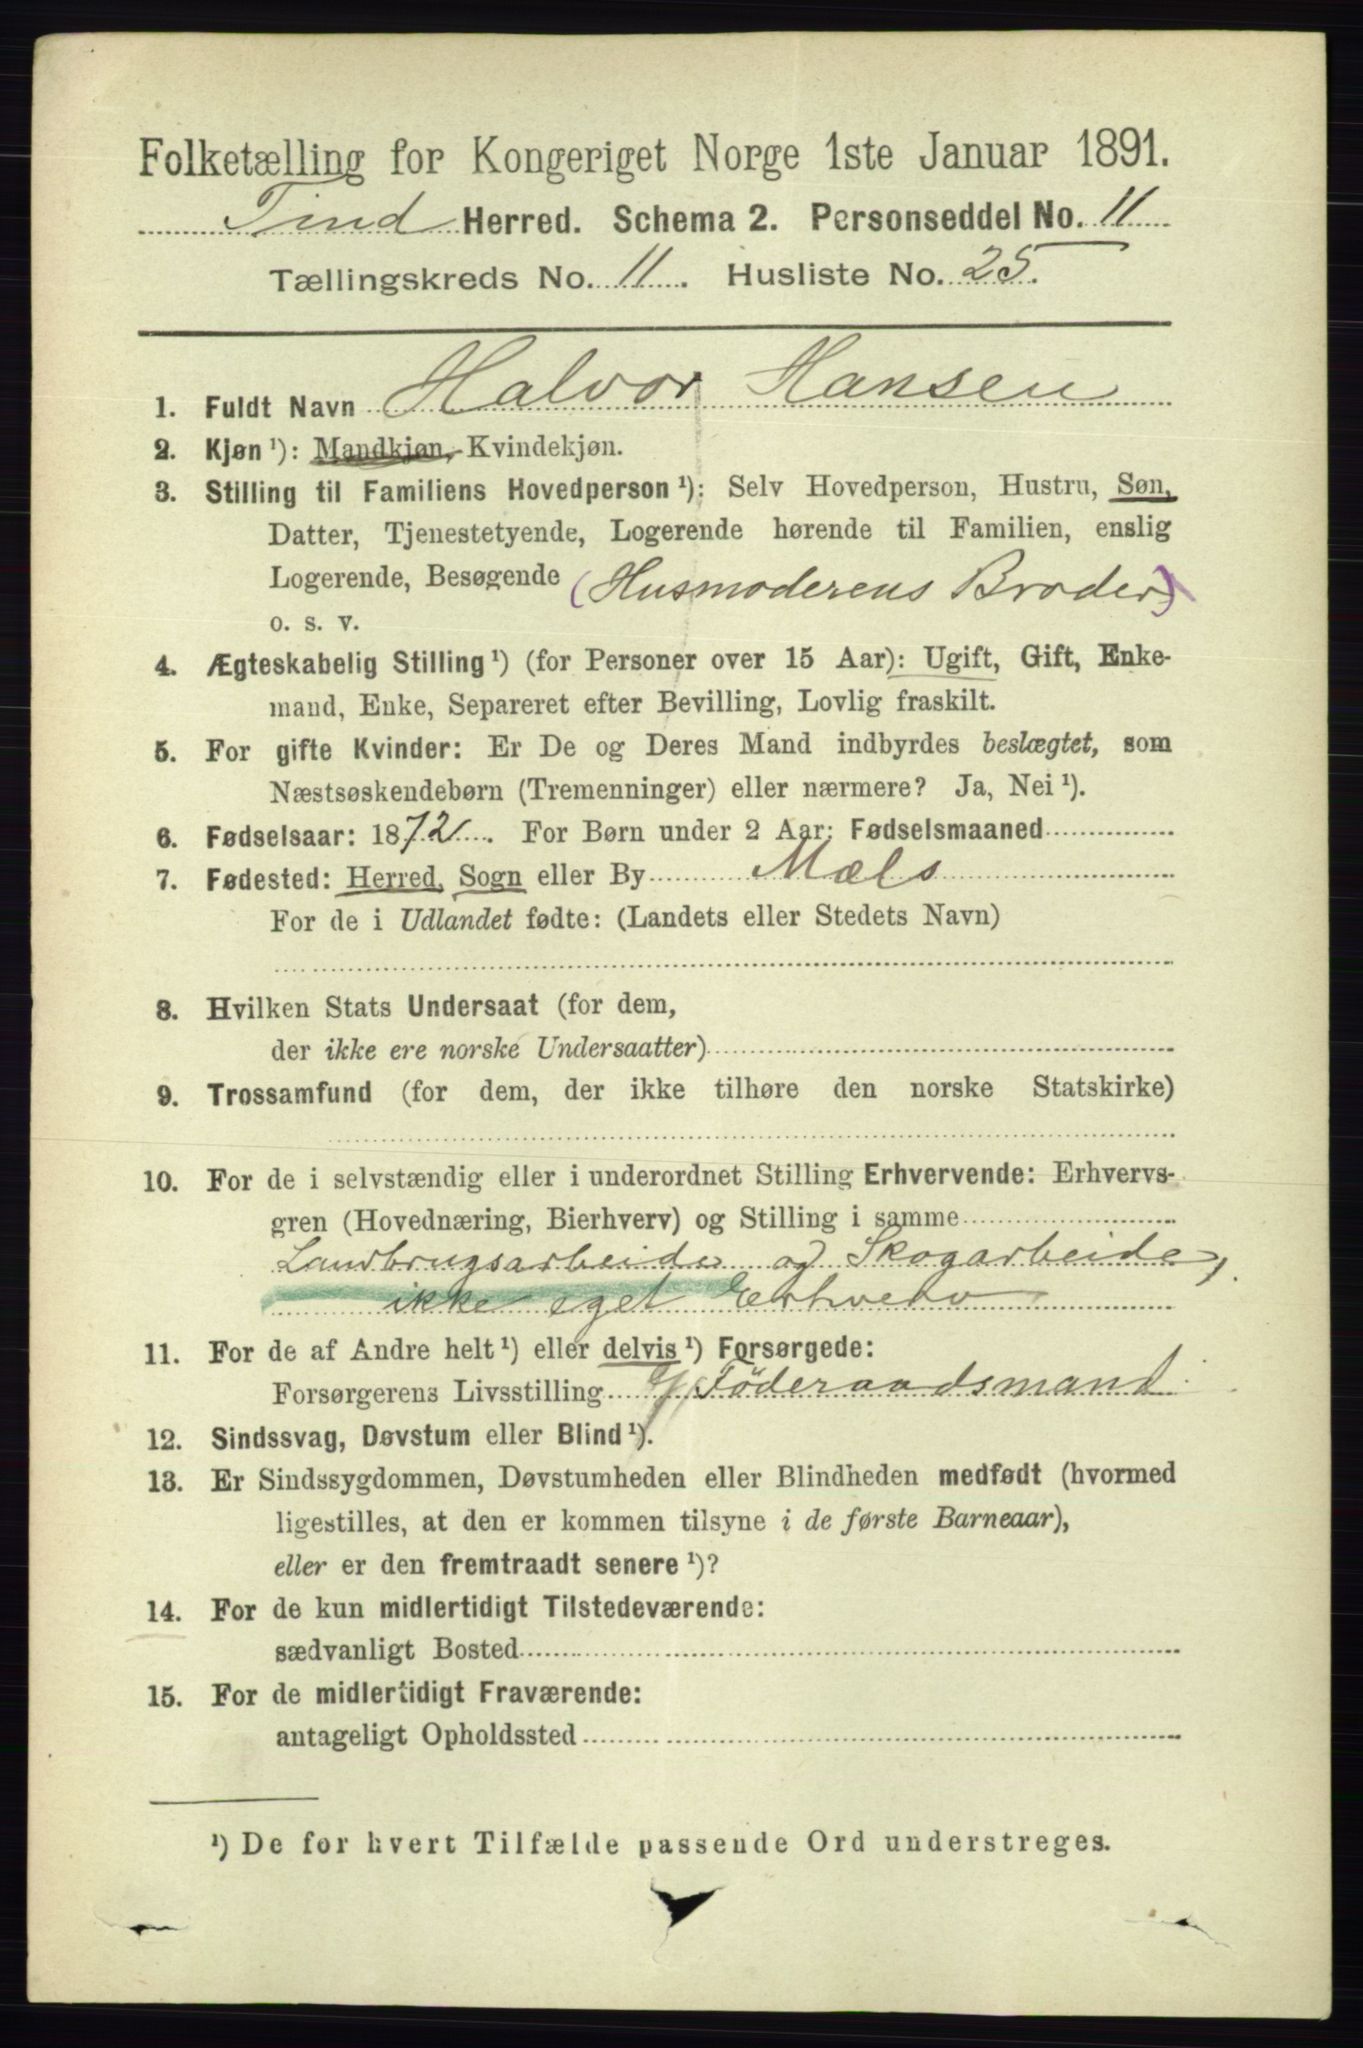 Folketælling for Kongeriget Norge 1ste Januar 1891.
Tind Herred. Schema 2. Personseddel No. 11
Tællingskreds No. 11. Husliste No. 25.
1. Fuldt Navn Halvor Hansen
2. Kjøn ¹): Mandkjøn, Kvindekjøn.
3. Stilling til Familiens Hovedperson ¹): Selv Hovedperson, Hustru, Søn,
Datter, Tjenestetyende, Logerende hørende til Familien, enslig
Logerende, Besøgende (Husmoderens Broder)
o. s. v.
4. Ægteskabelig Stilling ¹) (for Personer over 15 Aar): Ugift, Gift, Enke-
mand, Enke, Separeret efter Bevilling, Lovlig fraskilt.
5. For gifte Kvinder: Er De og Deres Mand indbyrdes beslægtet, som
Næstsøskendebørn (Tremenninger) eller nærmere? Ja, Nei ¹).
6. Fødselsaar: 1872. For Børn under 2 Aar: Fødselsmaaned
7. Fødested: Herred, Sogn eller By Mæls
For de i Udlandet fødte: (Landets eller Stedets Navn)
8. Hvilken Stats Undersaat (for dem,
der ikke ere norske Undersaatter)
9. Trossamfund (for dem, der ikke tilhøre den norske Statskirke)
10. For de i selvstændig eller i underordnet Stilling Erhvervende: Erhvervs-
gren (Hovednæring, Bierhverv) og Stilling i samme
Landbrugsarbeide og Skogarbeide,
ikke eget Erhverv
11. For de af Andre helt ¹) eller delvis ¹) Forsørgede:
Forsørgerens Livsstilling Föderaadsmand
12. Sindssvag, Døvstum eller Blind ¹).
13. Er Sindssygdommen, Døvstumheden eller Blindheden medfødt (hvormed
ligestilles, at den er kommen tilsyne i de første Barneaar),
eller er den fremtraadt senere ¹)?
14. For de kun midlertidigt Tilstedeværende:
sædvanligt Bosted
15. For de midlertidigt Fraværende:
antageligt Opholdssted
¹) De for hvert Tilfælde passende Ord understreges.